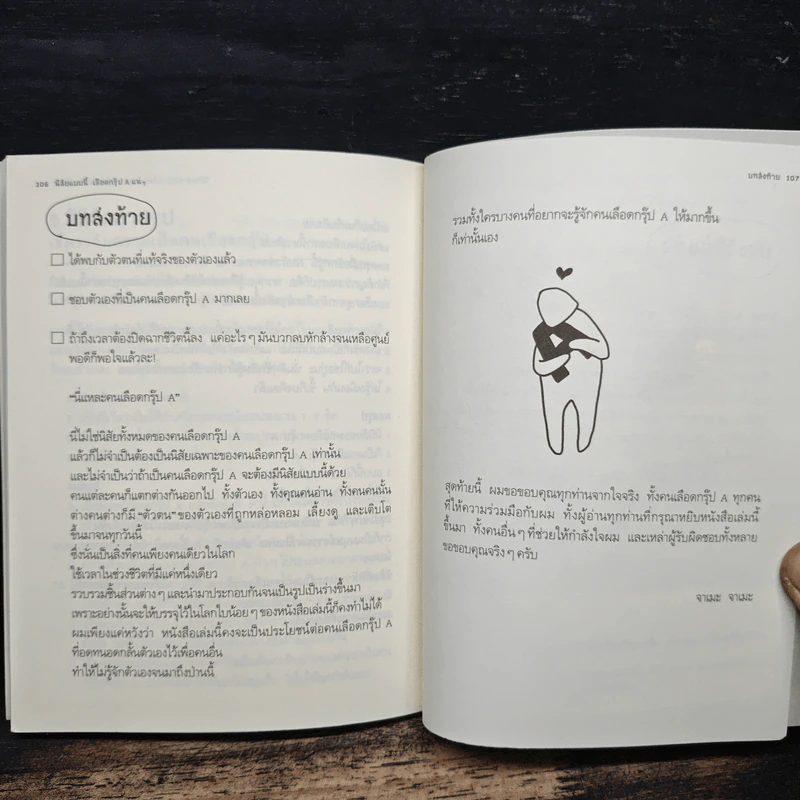 106 นิสัยแบบนี้ เลือดกรุ๊ป A แน่ๆ
บทส่งท้าย
ได้พบกับตัวตนที่แท้จริงของตัวเองแล้ว
ชอบตัวเองที่เป็นคนเลือดกรุ๊ป A มากเลย
ถ้าถึงเวลาต้องปิดฉากชีวิตนี้ลง แค่อะไรๆ มันบวกลบหักล้างจนเหลือศูนย์
พอดีก็พอใจแล้วละ!
“นี่แหละคนเลือดกรุ๊ป A”
นี่ไม่ใช่นิสัยทั้งหมดของคนเลือดกรุ๊ป A
แล้วก็ไม่จำเป็นต้องเป็นนิสัยเฉพาะของคนเลือดกรุ๊ป A เท่านั้น
และไม่จำเป็นว่าถ้าเป็นคนเลือดกรุ๊ป A จะต้องมีนิสัยแบบนี้ด้วย
คนแต่ละคนก็แตกต่างกันออกไป ทั้งตัวเอง ทั้งคุณคนอ่าน ทั้งคนคนนั้น
ต่างคนต่างก็มี “ตัวตน” ของตัวเองที่ถูกหล่อหลอม เลี้ยงดู และเติบโต
ขึ้นมาจนทุกวันนี้
ซึ่งนั่นเป็นสิ่งที่คนเพียงคนเดียวในโลก
ใช้เวลาในช่วงชีวิตที่มีแค่หนึ่งเดียว
รวบรวมชิ้นส่วนต่างๆ และนำมาประกอบกันจนเป็นรูปเป็นร่างขึ้นมา
เพราะอย่างนั้นจะให้บรรจุไว้ในโลกใบน้อยๆ ของหนังสือเล่มนี้ก็คงทำไม่ได้
ผมเพียงแค่หวังว่า หนังสือเล่มนี้คงจะเป็นประโยชน์ต่อคนเลือดกรุ๊ป A
ที่อดทนอดกลั้นตัวเองไว้เพื่อคนอื่น
ทำให้ไม่รู้จักตัวเองจนมาถึงป่านนี้
บทส่งท้าย 107
รวมทั้งใครบางคนที่อยากจะรู้จักคนเลือดกรุ๊ป A ให้มากขึ้น
ก็เท่านั้นเอง
สุดท้ายนี้ ผมขอขอบคุณทุกท่านจากใจจริง ทั้งคนเลือดกรุ๊ป A ทุกคน
ที่ให้ความร่วมมือกับผม ทั้งผู้อ่านทุกท่านที่กรุณาหยิบหนังสือเล่มนี้
ขึ้นมา ทั้งคนอื่นๆ ที่ช่วยให้กำลังใจผม และเหล่าผู้รับผิดชอบทั้งหลาย
ขอขอบคุณจริงๆ ครับ
จาเมะ จาเมะ